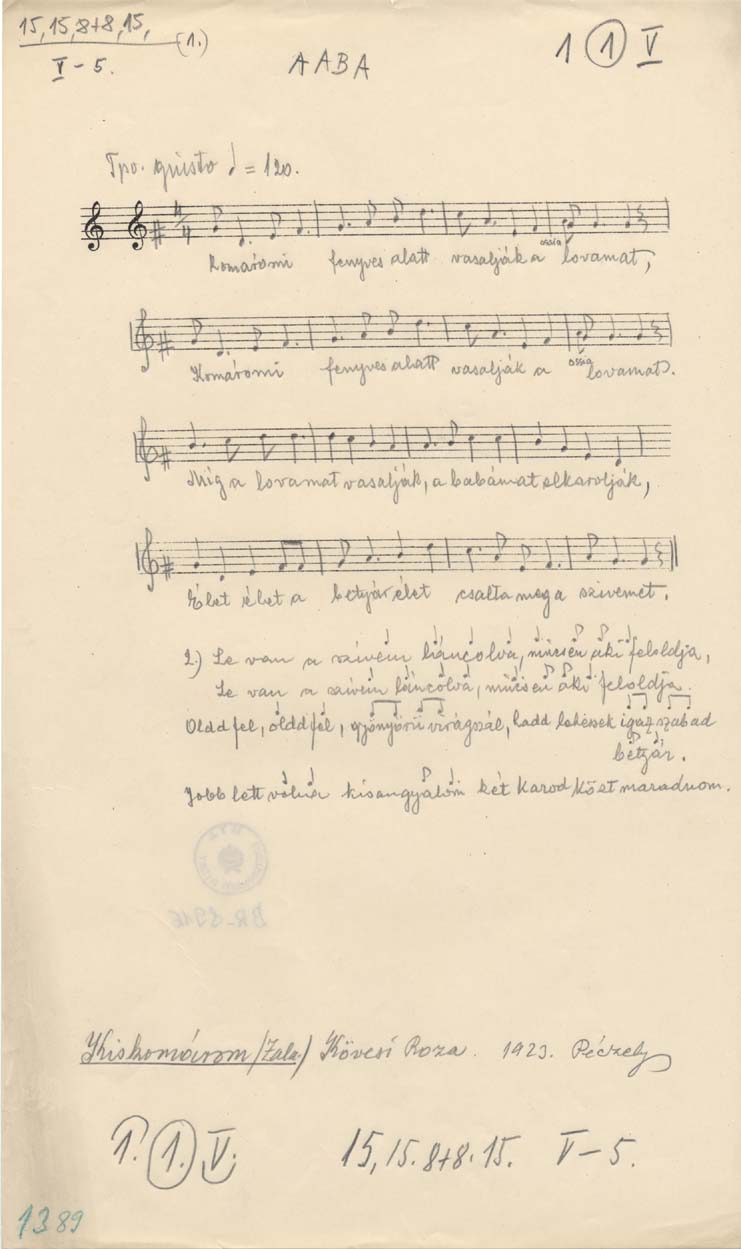 15, 15, 8+8, 15,
(1.)
V – 5.
AABA
1 (1) V
Tpo. giusto ♩ = 120.
4/4
ossia
Komáromi fenyves alatt vasalják a lovamat,
ossia
Komáromi fenyves alatt vasalják a lovamat.
Mig a lovamat vasalják, a babámat elkarolják,
Élet élet a betyár élet csalta meg a szivemet.
2.) Le van a szivem láncolva, nincsen aki feloldja,
Le van a szivem láncolva, nincsen aki feloldja.
Oldd fel, oldd fel, gyönyörü virágszál, hadd lehessek igaz szabad
betyár.
Jobb lett volna kisangyalom két karod közt maradnom.
BR-8916
Kiskomárom /Zala./ Kövesi Roza. 1923. Péczely
1. (1.) V. 15, 15. 8+8. 15. V – 5.
1389